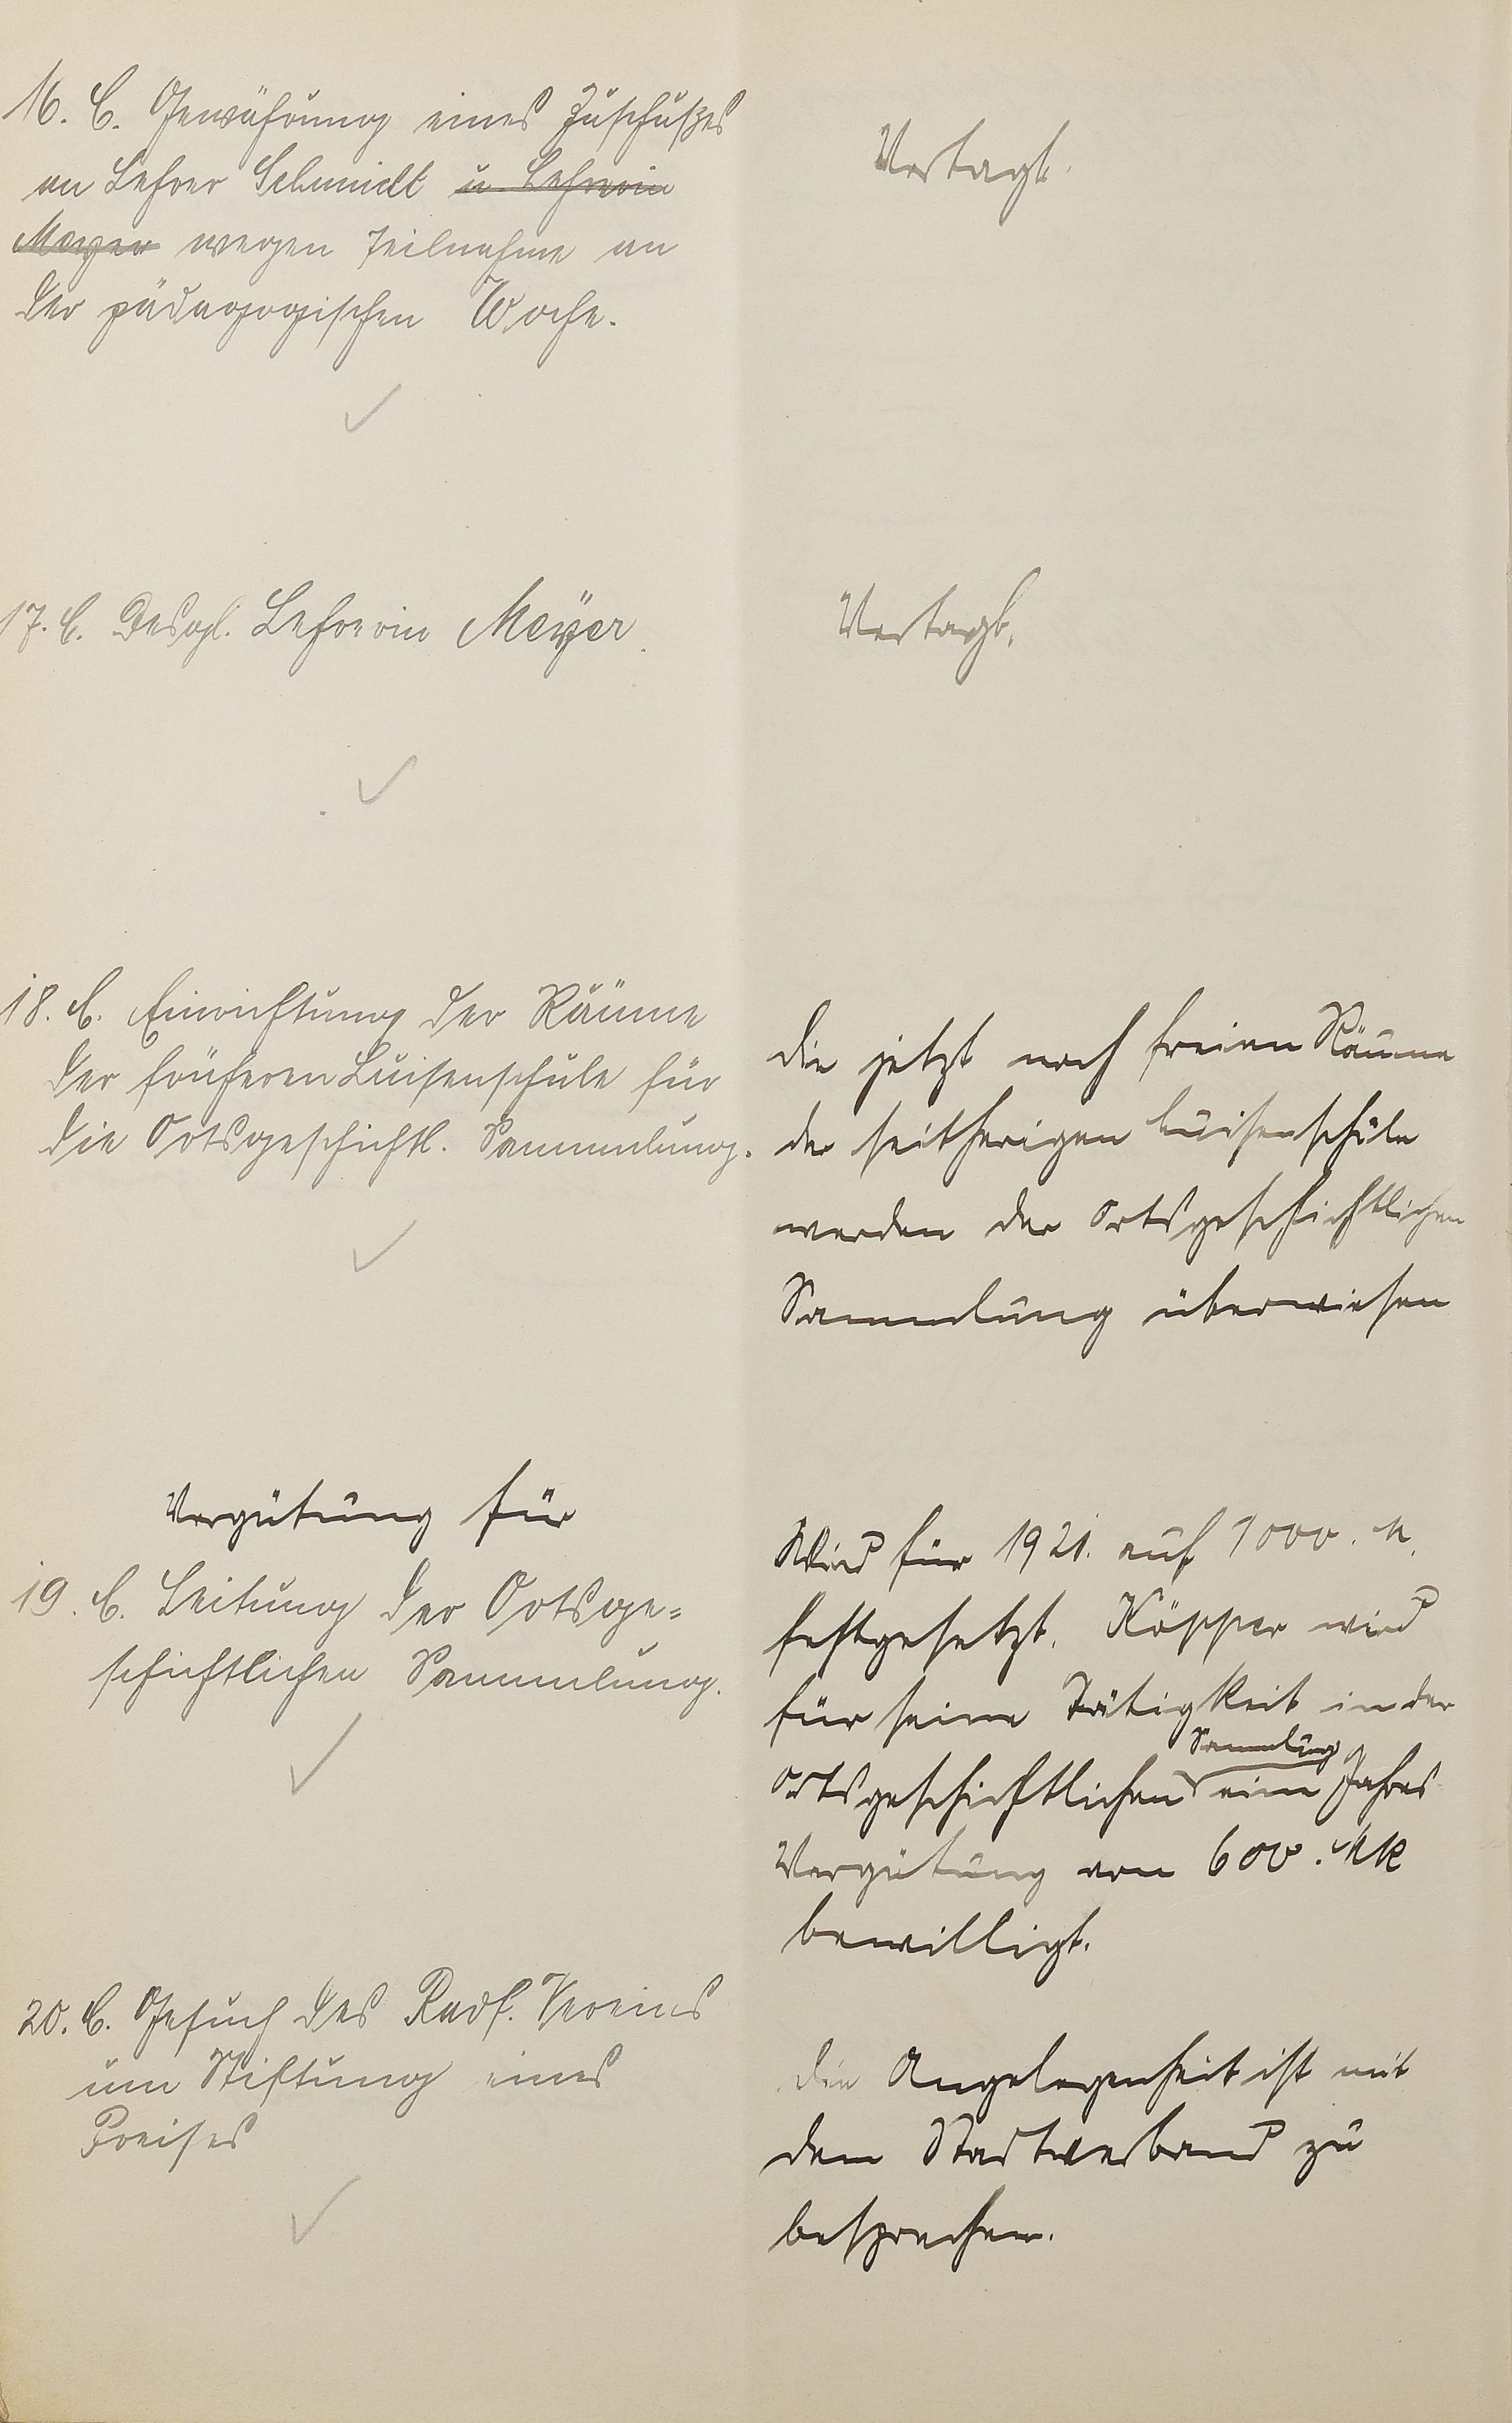 16. C. Gewährung eines Zuschußes
an Lehrer Schmidt u. Lehrerin
Meyer wegen Teilnahme an
der pädagogischen Woche.
Vertagt.
17. C. Desgl. Lehrerin Meÿer.
Vertagt.
18. C. Einrichtung der Räume
der früheren Luisenschule für
die Ortsgeschichtl. Sammlung.
die jetzt noch freien Räume
der seitherigen Luisenschule
werden der ortsgeschichtlichen
Sammlung überwiesen
Vergütung für
19. C. Leitung der Ortsge=
schichtlichen Sammlung.
Wird für 1921. auf 1000. M.
festgesetzt. Köpper wird
für seine Tätigkeit in der
Sammlung
ortsgeschichtlichen eine Jahres
Vergütung von 600. Mk
bewilligt.
20. C. Gesuch des Radf. Vereins
um Stiftung eines
Preises
die Angelegenheit ist mit
dem Stadtverband zu
besprechen.